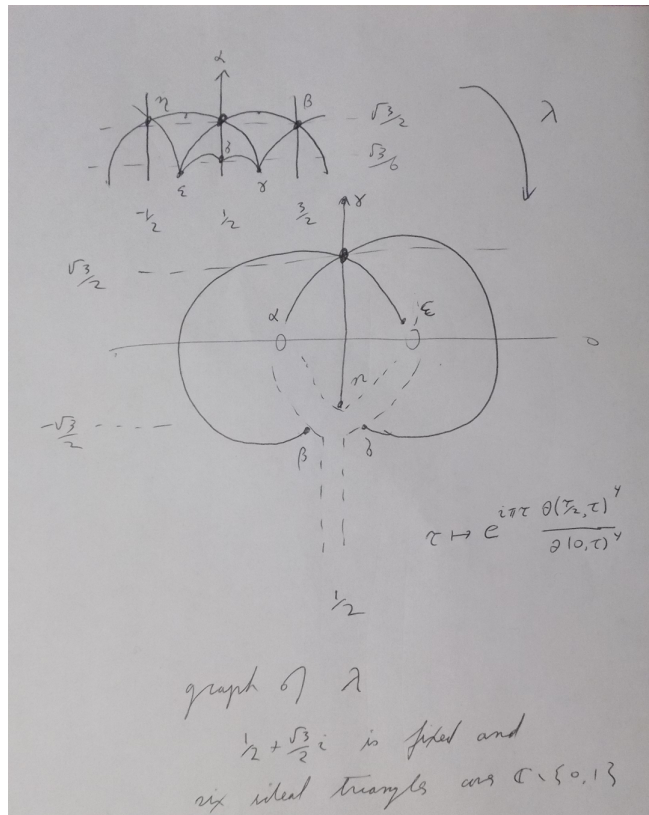 α
η
β
√3/2
δ
√3/6
ε
γ
-1/2
1/2
3/2
λ
γ
√3/2
α
ε
0
η
-√3/2
β
δ
τ ↦ e^{iπτ} θ(τ/2, τ)^4 / θ(0, τ)^4
1/2
graph of λ
1/2 + √3/2 i is fixed and
six ideal triangles cover ℂ \ {0,1}